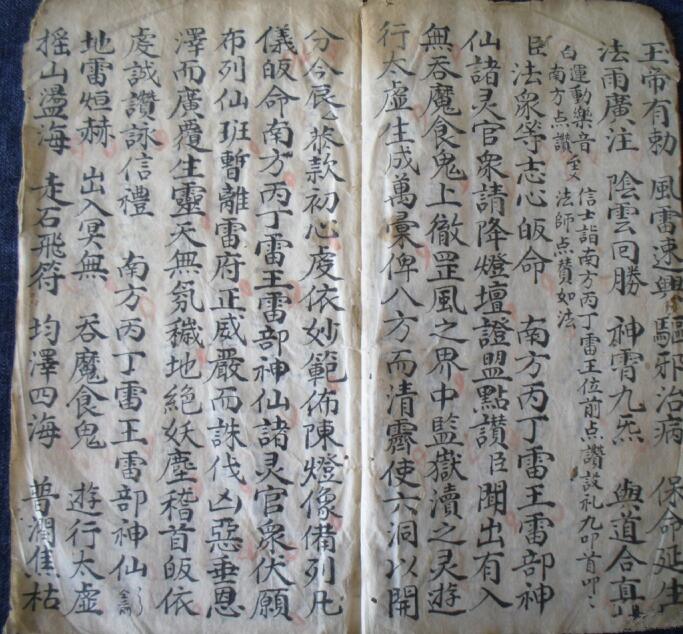 玉帝有勅　風雷速興　驅邪治病　保命延生
法雨廣注　陰雲囘勝　神霄九炁　與道合真
白運動樂音　信士詣南方丙丁雷王位前点讃設礼九叩首叩〻
南方点讃　法師点賛如法
臣法衆等志心皈命　南方丙丁雷王雷部神
仙諸灵官衆請降燈壇證盟點讃臣聞出有入
無吞魔食鬼上徹罡風之界中監嶽瀆之灵遊
行太虛生成萬彙俾八方而清霽使六洞以開
分合辰〻恭款初心虔依妙範佈陳燈像備列凢
儀皈命南方丙丁雷王雷部神仙諸灵官衆伏願
布列仙班暫離雷府正威嚴而誅伐凶惡垂恩
澤而廣覆生靈天無氛穢地絕妖塵稽首皈依
虔誠讚詠信禮　南方丙丁雷王雷部神仙
地雷烜赫　出入冥無　吞魔食鬼　遊行太虛
摇山盪海　走石飛符　均澤四海　普潤焦枯